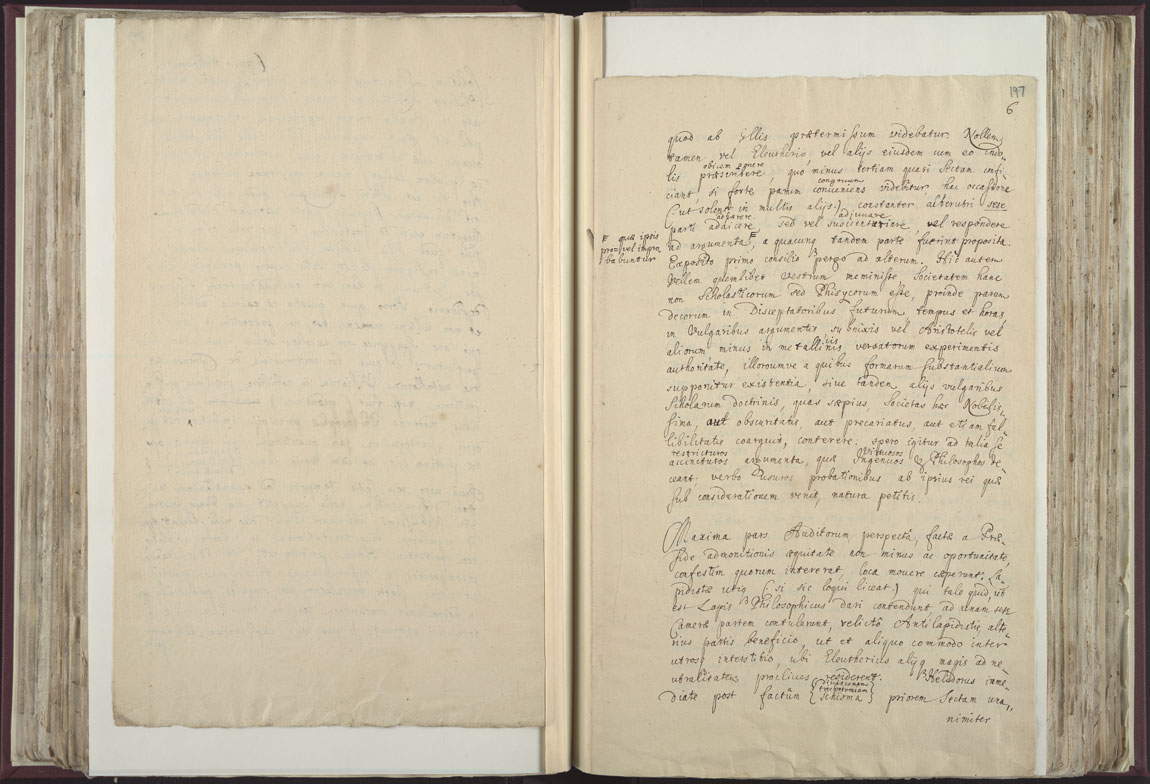 197
6
quod ab illis prætermissum videbatur. Nollem
tamen vel Eleutherio, vel alijs eiusdem cum eo indo-
obicem ponere
lis præscribere, quo minus tertiam quasi Sectam infi-
congruum
ciant, si forte parum conveniens videbitur, hac occasione
(ut solent in multis alijs) constanter alterutri sese
adhærere adjuvare
parti adaicere sed vel, vel respondere
quæ ipsis
prov vel impro
babuntur
ad argumenta, a quacunq tandem parte fuerint proposita.
Exposito primo consilio pergo ad alterum. Hic autem
Vellem quemlibet vestrum meminisse, Societatem hanc
non Scholasticorum sed Phisycorum esse, proinde parum
decorum in Disceptatoribus futurum, tempus et horas
in Vulgaribus argumentis, subnixis vel Aristotelis vel
aliorum minus in metallicis versatorum experimentis
authoritate, illorumve a quibus formarum substantialium
supponitur existentia, sive tandem alijs vulgaribus
Scholarum doctrinis, quas sæpius, Societas hæc Nobilis-
sima, aut obscuritatis, aut precariatus, aut etiam fal-
libilitatis coarguit, conterere: spero igitur ad talia se
restricturos Virtuosos
ascincturos argumenta, quæ Ingenuos & Philosophos de-
ceant; verbo usuros probationibus ab ipsius rei quæ
sub considerationem venit, natura petitis.
Maxima pars Auditorum perspecta, factæ a Præ-
side admonitionis æquitate non minus ac oportunitate,
confestim quorum intererat, loca movere cæperunt. La-
pidistæ utiq (si sic loqui liceat) qui tale quid, ut
est Lapis Philosophicus dari contendunt ad unam sese
Cameræ partem contulerunt, relictô Antilapidistis alte-
rius partis beneficio, ut et aliquo commodo inter
utrosq interstitio, ubi Eleutherius alijq magis ad ne-
utralitatem proclives residerent. Heliodorus imme-
diate post factum {Schisma} priorem Sectam una,,
nimiter